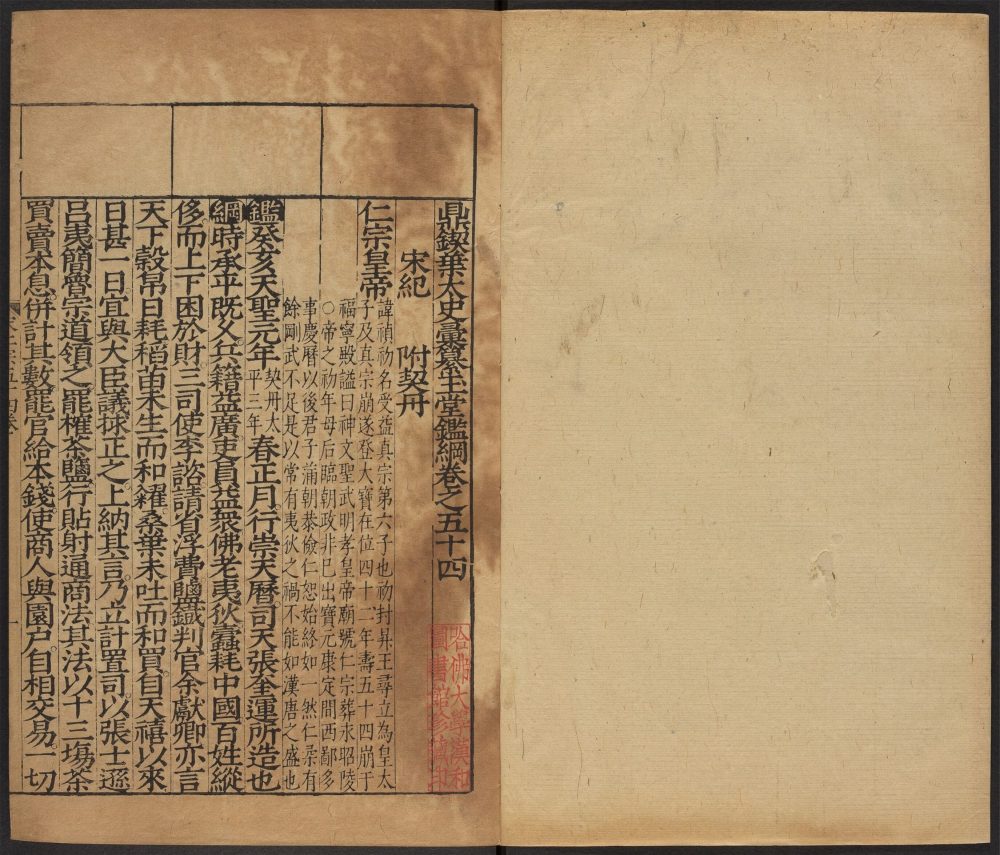 鼎鍥葉太史彙纂玉堂鑑綱卷之五十四
宋紀　附契丹
仁宗皇帝
諱禎初名受益真宗第六子也初封昇王尋立為皇太
子及真宗崩遂登大寶在位四十二年壽五十四崩于
福寧殿謚曰神文聖武明孝皇帝廟號仁宗葬永昭陵
○帝之初年母后臨朝政非已出寶元康定間西鄙多
事慶曆以後君子滿朝恭儉仁恕始終如一然仁柔有
餘剛武不足是以常有夷狄之禍不能如漢唐之盛也
鑑癸亥天聖元年契丹太平三年春正月行崇天曆司天張奎運所造也
綱時承平既久兵籍益廣吏員益衆佛老夷狄蠹耗中國百姓縱
侈而上下困於財三司使李諮請省浮費鹽鐵判官余獻卿亦言
天下穀帛日耗稻苗未生而和糴桑葉未吐而和買自天禧以來
日甚一日宜與大臣議捄正之上納其言乃立計置司以張士遜
呂夷簡魯宗道領之罷榷茶鹽行貼射通商法其法以十三塲茶
買賣本息併計其數罷官給本錢使商人與園户自相交易一切
哈佛大學漢和
圖書館珍藏印